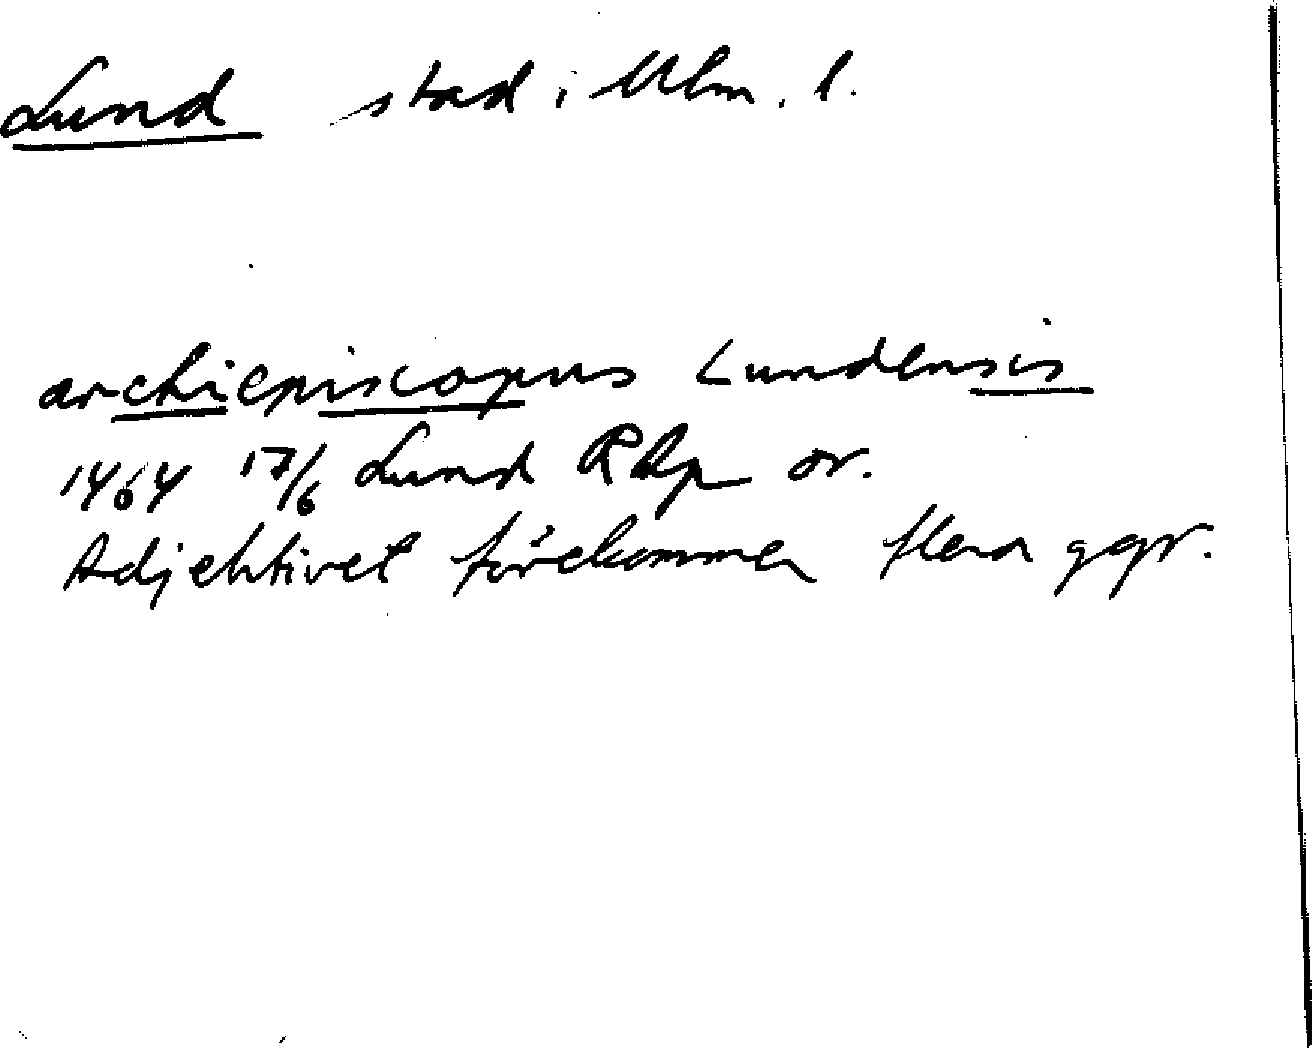 Lund stad i Mlm. l.
archiepiscopus Lundensis
1464 17/6 Lund RAp or.
Adjektivet förekommer flera ggr.